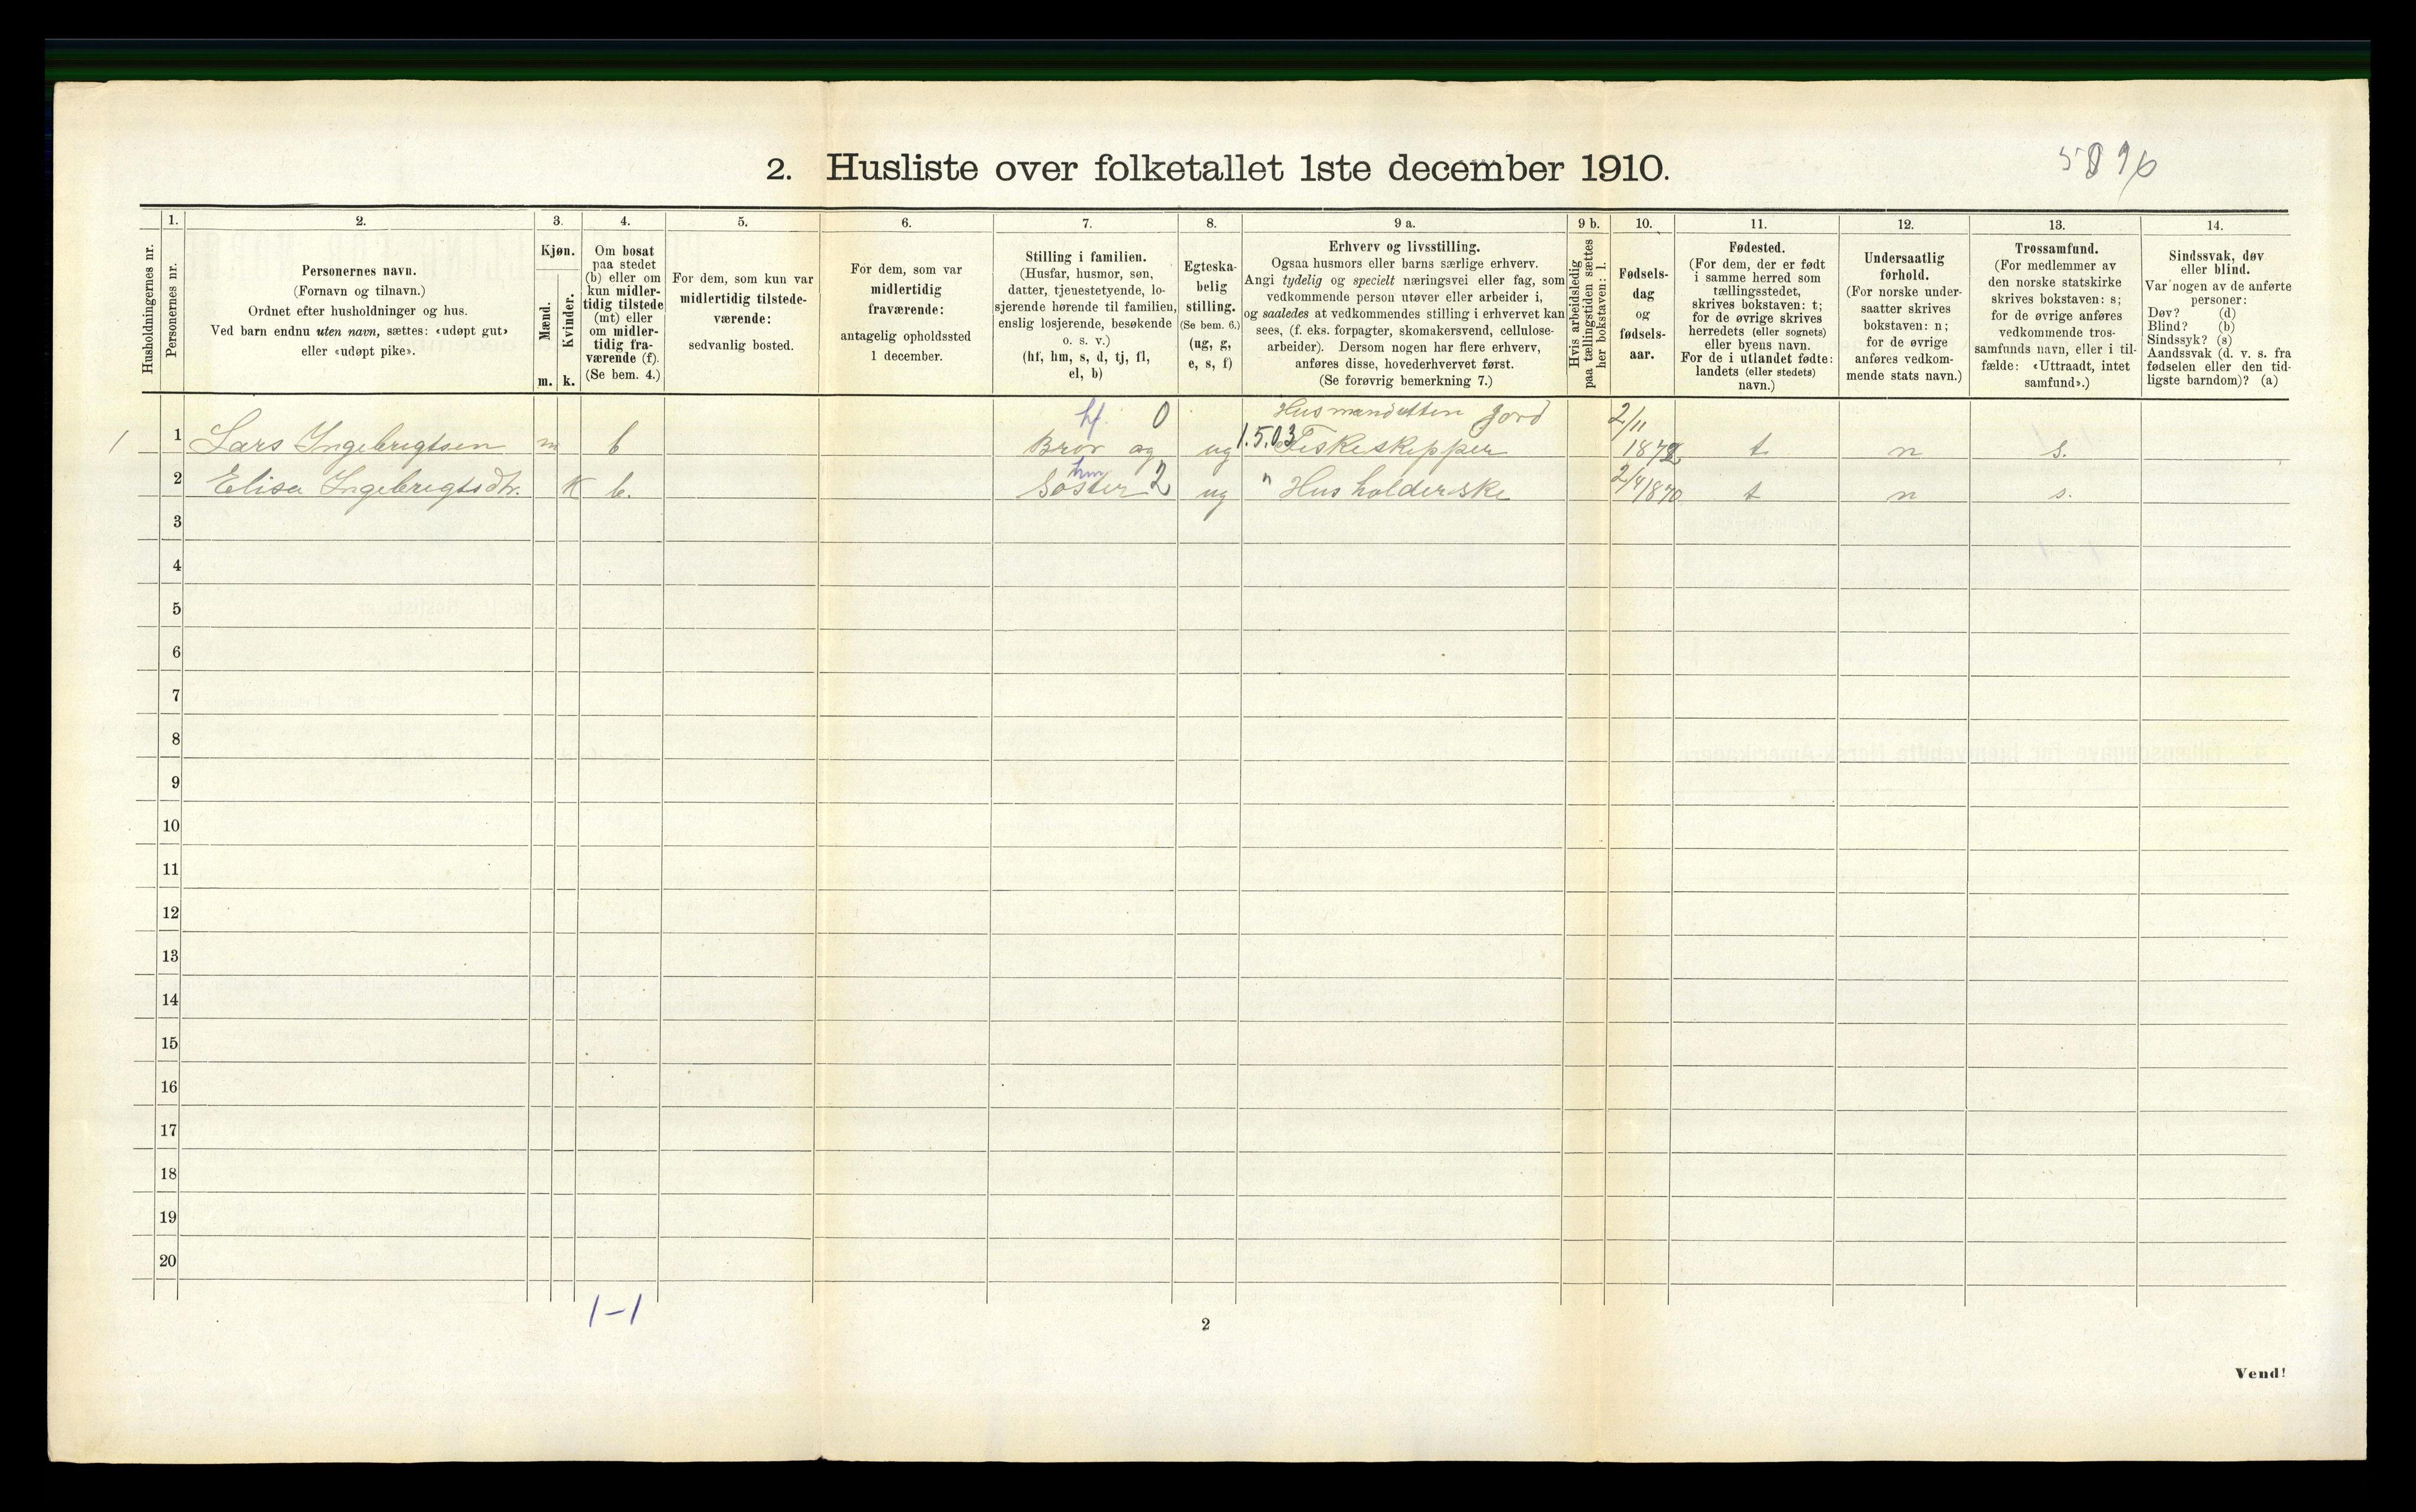 2. Husliste over folketallet 1ste december 1910.
Husholdningernes nr.
1.
Personernes nr.
2.
Personernes navn.
(Fornavn og tilnavn.)
Ordnet efter husholdninger og hus.
Ved barn endnu uten navn, sættes: «udøpt gut»
eller «udøpt pike».
3.
Kjøn.
Mænd.
m.
Kvinder.
k.
4.
Om bosat
paa stedet
(b) eller om
kun midler-
tidig tilstede
(mt) eller
om midler-
tidig fra-
værende (f).
(Se bem. 4.)
5.
For dem, som kun var
midlertidig tilstede-
værende:
sedvanlig bosted.
6.
For dem, som var
midlertidig
fraværende:
antagelig opholdssted
1 december.
7.
Stilling i familien.
(Husfar, husmor, søn,
datter, tjenestetyende, lo-
sjerende hørende til familien,
enslig losjerende, besøkende
o. s. v.)
(hf, hm, s, d, tj, fl,
el, b)
8.
Egteska-
belig
stilling.
(Se bem. 6.)
(ug, g,
e, s, f)
9 a.
Erhverv og livsstilling.
Ogsaa husmors eller barns særlige erhverv.
Angi tydelig og specielt næringsvei eller fag, som
vedkommende person utøver eller arbeider i,
og saaledes at vedkommendes stilling i erhvervet kan
sees, (f. eks. forpagter, skomakersvend, cellulose-
arbeider). Dersom nogen har flere erhverv,
anføres disse, hovederhvervet først.
(Se forøvrig bemerkning 7.)
9 b.
Hvis arbeidsledig
paa tællingstiden sættes
her bokstaven: l.
10.
Fødsels-
dag
og
fødsels-
aar.
11.
Fødested.
(For dem, der er født
i samme herred som
tællingsstedet,
skrives bokstaven: t;
for de øvrige skrives
herredets (eller sognets)
eller byens navn.
For de i utlandet fødte:
landets (eller stedets)
navn.)
12.
Undersaatlig
forhold.
(For norske under-
saatter skrives
bokstaven: n;
for de øvrige
anføres vedkom-
mende stats navn.)
13.
Trossamfund.
(For medlemmer av
den norske statskirke
skrives bokstaven: s;
for de øvrige anføres
vedkommende tros-
samfunds navn, eller i til-
fælde: «Uttraadt, intet
samfund».)
14.
Sindssvak, døv
eller blind.
Var nogen av de anførte
personer:
Døv? (d)
Blind? (b)
Sindssyk? (s)
Aandssvak (d. v. s. fra
fødselen eller den tid-
ligste barndom)? (a)
hf. 0 Husmand utten Jord 2/11
1 1 Lars Ingebrigtsen m b Bror og ug 1.5.03 Fiskeskipper 1872 t n s.
hm
2 Elisa Ingebrigtsdtr. K b. Søster 2 ug " Husholderske 2/4 1870 t n s.
3
4
5
6
7
8
9
10
11
12
13
14
15
16
17
18
19
20
1-1
2
Vend!